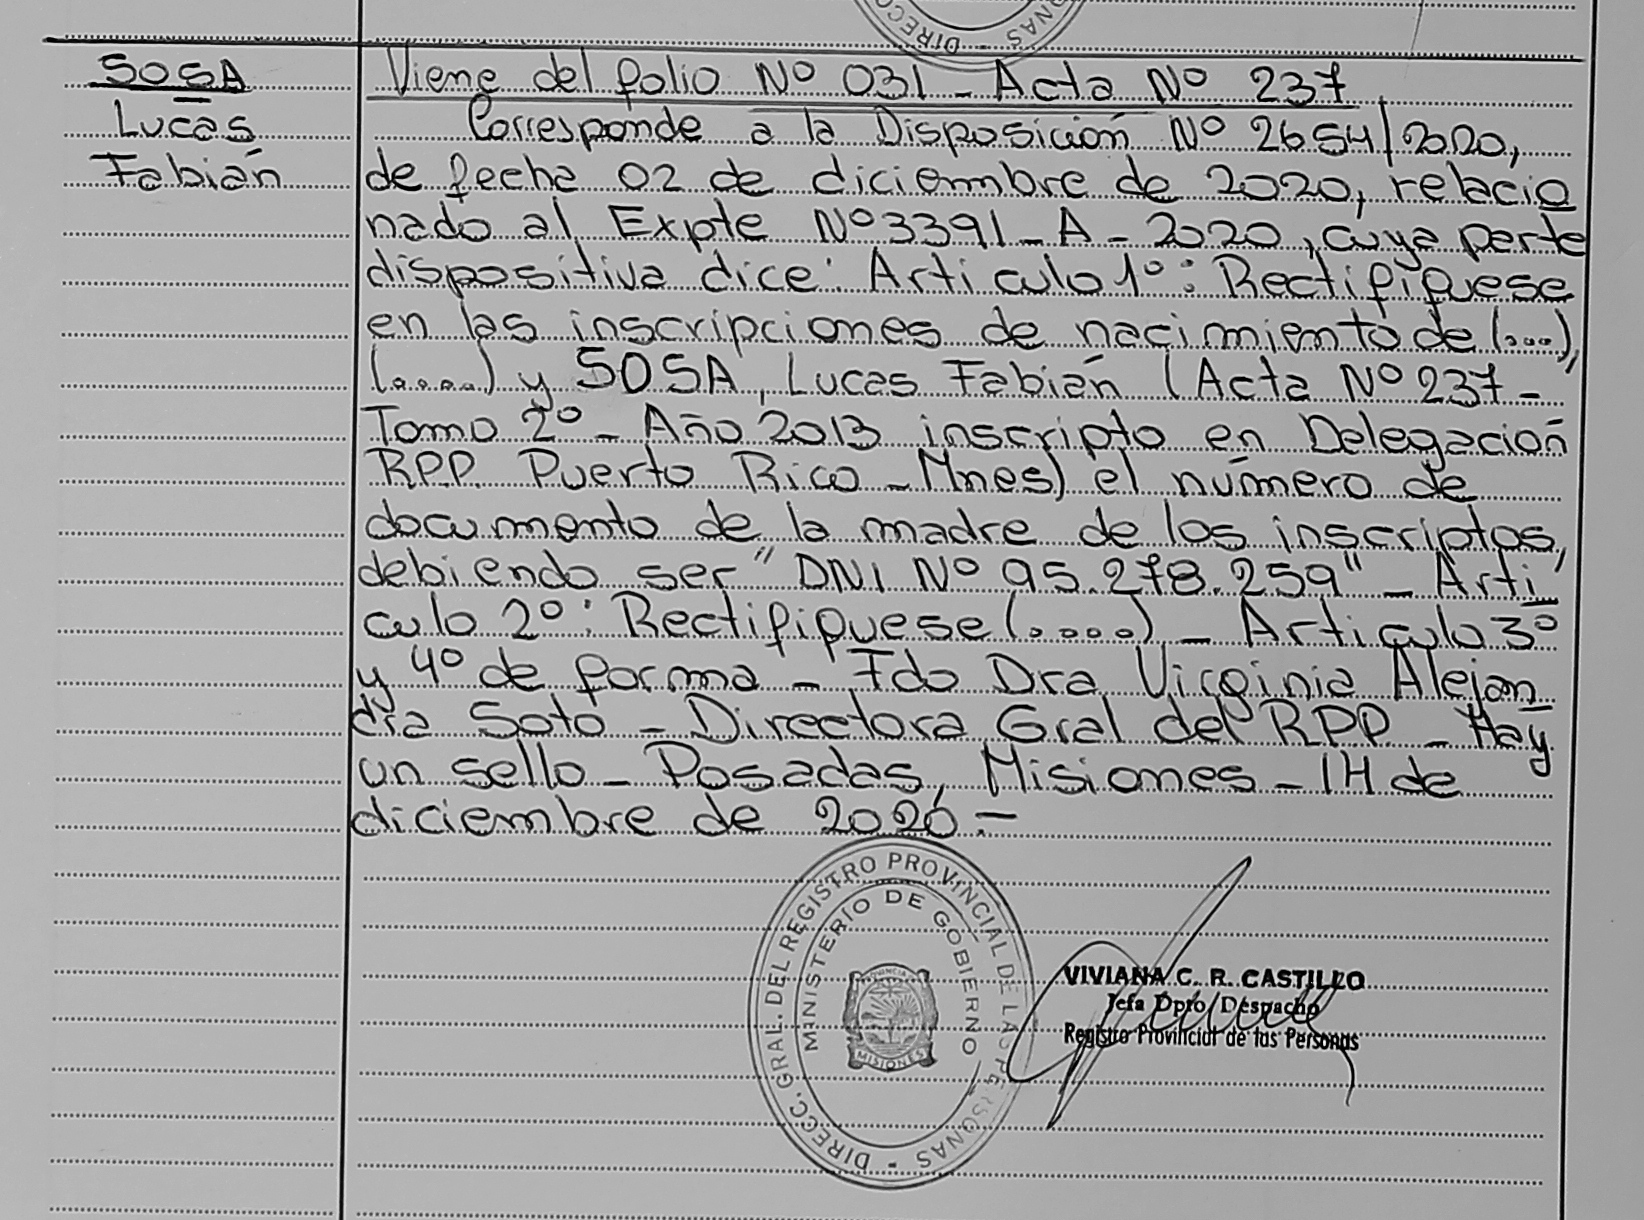 DIRECC
NAS
SOSA
Lucas
Fabián
Viene del folio Nº 031 - Acta Nº 237
Corresponde a la Disposición Nº 2654/2020,
de fecha 02 de diciembre de 2020, relacio
nado al Expte Nº 3391-A-2020, cuya parte
dispositiva dice: Articulo 1º: Rectifiquese
en las inscripciones de nacimiento de (...),
(.....) y SOSA, Lucas Fabián (Acta Nº 237-
Tomo 2º - Año 2013 inscripto en Delegación
RPP. Puerto Rico - Mnes) el número de
documento de la madre de los inscriptos,
debiendo ser "DNI Nº 95.278.259" - Arti
culo 2º: Rectifiquese (....) - Articulo 3º
y 4º de forma - Fdo Dra Virginia Alejan
dra Soto - Directora Gral del RPP - Hay
un sello - Posadas, Misiones - 14 de
diciembre de 2020.-
DIRECC. GRAL. DEL REGISTRO PROVINCIAL DE LAS PERSONAS -
MINISTERIO DE GOBIERNO
PROVINCIA
MISIONES
VIVIANA C. R. CASTILLO
Jefa Dpto Despacho
Registro Provincial de las Personas